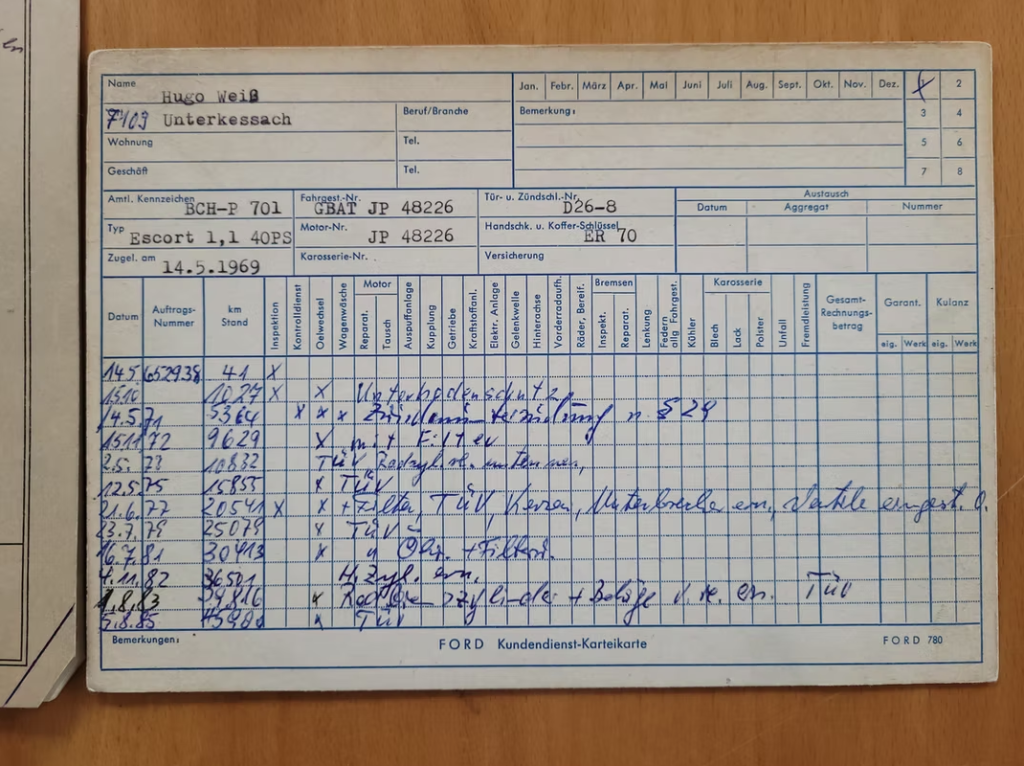 Name Hugo Weiß
7109 Unterkessach
Beruf/Branche
Wohnung
Tel.
Geschäft
Tel.
Jan. Febr. März Apr. Mai Juni Juli Aug. Sept. Okt. Nov. Dez. 1 2
Bemerkung: 3 4
5 6
7 8
Amtl. Kennzeichen BCH-P 701 Fahrgest.-Nr. GBAT JP 48226 Tür- u. Zündschl.-Nr. D26-8
Austausch
Datum Aggregat Nummer
Typ Escort 1,1 40PS Motor-Nr. JP 48226 Handschk. u. Koffer-Schlüssel ER 70
Zugel. am 14.5.1969 Karosserie-Nr. Versicherung
Datum Auftrags-Nummer km Stand Inspektion Kontrolldienst Oelwechsel Wagenwäsche Motor Reparat. Tausch Auspuffanlage Kupplung Getriebe Kraftstoffanl. Elektr. Anlage Gelenkwelle Hinterachse Vorderradaufh. Räder, Bereif. Bremsen Inspekt. Reparat. Lenkung Federn allg Fahrgest. Kühler Karosserie Blech Lack Polster Unfall Fremdleistung Gesamt-Rechnungs-betrag Garant. eig. Werk Kulanz eig. Werk
14.5. 652938 41 X
1510 1027 X X Unterbodenschutz
14.5.71 5364 X X X n. § 29
15.11.72 9629 X mit Filter
2.5.73 10832 TÜV
12.5.75 15855 x TÜV
21.6.77 20541 X x + Filter, TÜV, Kerzen, Unterbrecher ern., Ventile eingest.
23.7.79 25079 x TÜV
16.7.81 30413 x " + Filter
4.11.82 36501 H. Zyl. ern.
1.8.83 x Radbremszylinder + Beläge v. re. ern. TÜV
5.8.85 x TÜV
Bemerkungen: FORD Kundendienst-Karteikarte FORD 780